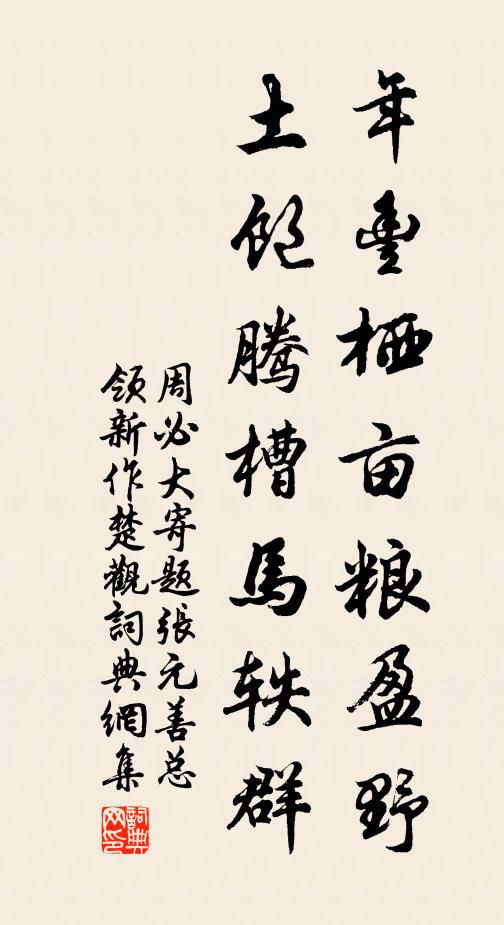 年豐栖亩粮盈野
士飽腾槽馬轶群
周必大寄題張元善总
领新作楚觀詞典網集
詞典网印